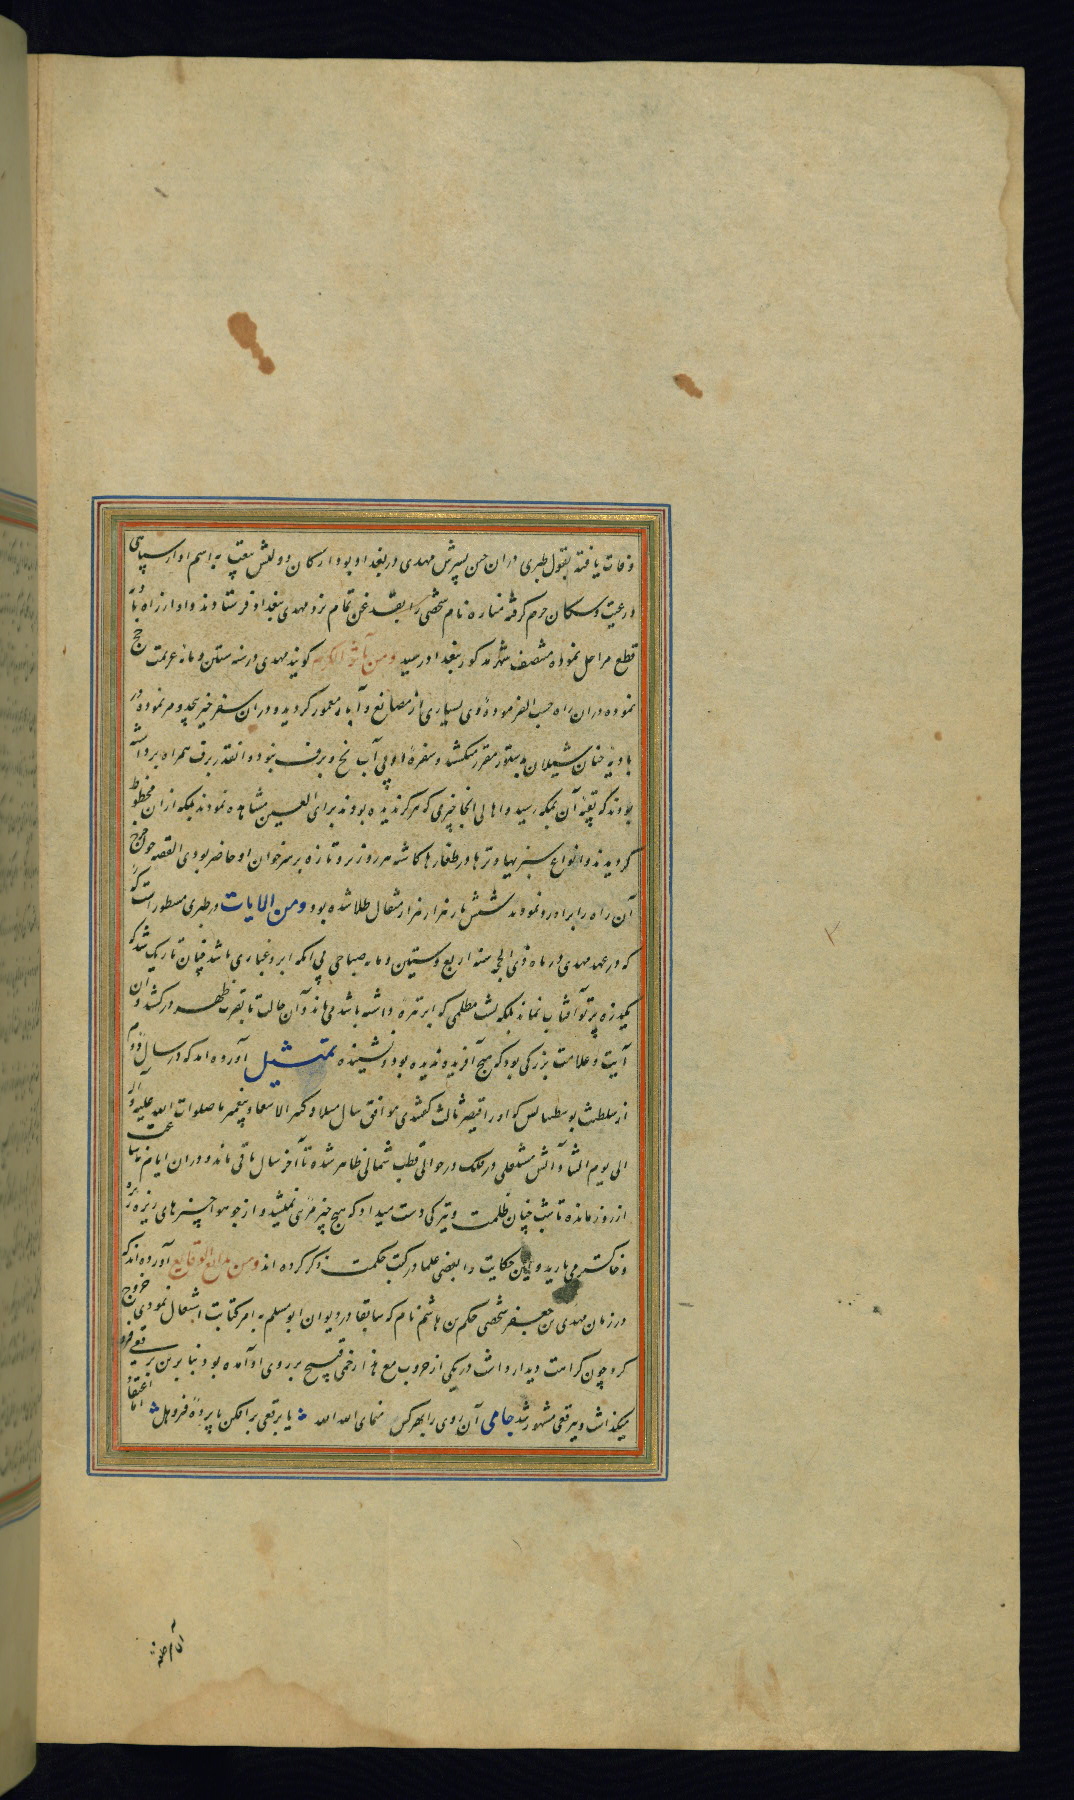 وفات یافته بقول طبری دران حین پسرش مهدی در بغداد بود ارکان دولتش بیعت به اسم او از سپاهی
و رعیت و سکان حرم گرفته مناره نام شخصی را بقدغن تمام نزد مهدی ببغداد فرستادند و او از راه
قطع مراحل نموده منتصف شهر مذکور ببغداد رسید ومن مآثره الکریمه گویند مهدی در سنه ستین و مائه عزیمت حج
نموده دران راه حسب الفرموده وی بسیاری از مصانع و آبها معمور گردید و دران سفر خیر بیحد و مر نموده در
بادیه چنان شیلان بدستور مقرر میکشید و سفرهٔ او بی آب یخ و برف نبود و آنقدر برف همراه برداشته
بودند که بقیهٔ آن بمکه رسید و اهالی انجا چیزی که هرگز ندیده بودند برای العین مشاهده نمودند بلکه ازان محظوظ
گردیدند و انواع سبزیها و ترها در طغارها کاشته هر روز تر و تازه بر سر خوان او حاضر بودی القصه چون خرج
آن راه را برآورد نمودند شش بار هزار هزار مثقال طلا شده بود ومن الایات در طبری مسطور است که
که در عهد مهدی در ماه ذی الحجه سنه اربع و ستین و مایه صباحی بی انکه ابر و غباری باشد چنان تاریک شد که
یکذره پرتو آفتاب نماند بلکه شب مظلمی که ابر تیره داشته باشد می ماند و آن حالت تا بقرب ظهر در کشید و آن
آیت و علامت بزرگی بود که هیچ آفریده ندیده بود و نشنیده تمثیل آورده اند که در سال دوم
از سلطنت که او را قیصر ثالث گفتندی موافق سال میلاد پیغمبر ما صلوات الله علیه و آله
الی یوم آتش مشعلی در فلک در حوالی قطب شمالی ظاهر شده تا آخر سال باقی ماند و دران ایام
از روز مانده تا شب چنان ظلمت و تیرگی دست میداد که هیچ چیز مرئی نمیشد و از جو هوا چیزهای ریزه
و خاکستر می بارید و این حکایت را بعضی علما در کتب حکمت ذکر کرده اند ومن بدایع الوقایع آورده اند که
در زمان مهدی بن جعفر شخصی حکم بن هاشم نام که سابقا در دیوان ابو مسلم به امر کتابت اشتغال نمودی خروج
کرد چون کراهت دیدار داشت در یکی از حروب مع هذا زخمی قبیح بر روی او آمده بود بنا برین برقعی فرو
میگذاشت و ببرقعی مشهور شد جامی آن روی را بهر کس منمای الله الله یا برقعی برافکن یا پرده فروهل اما